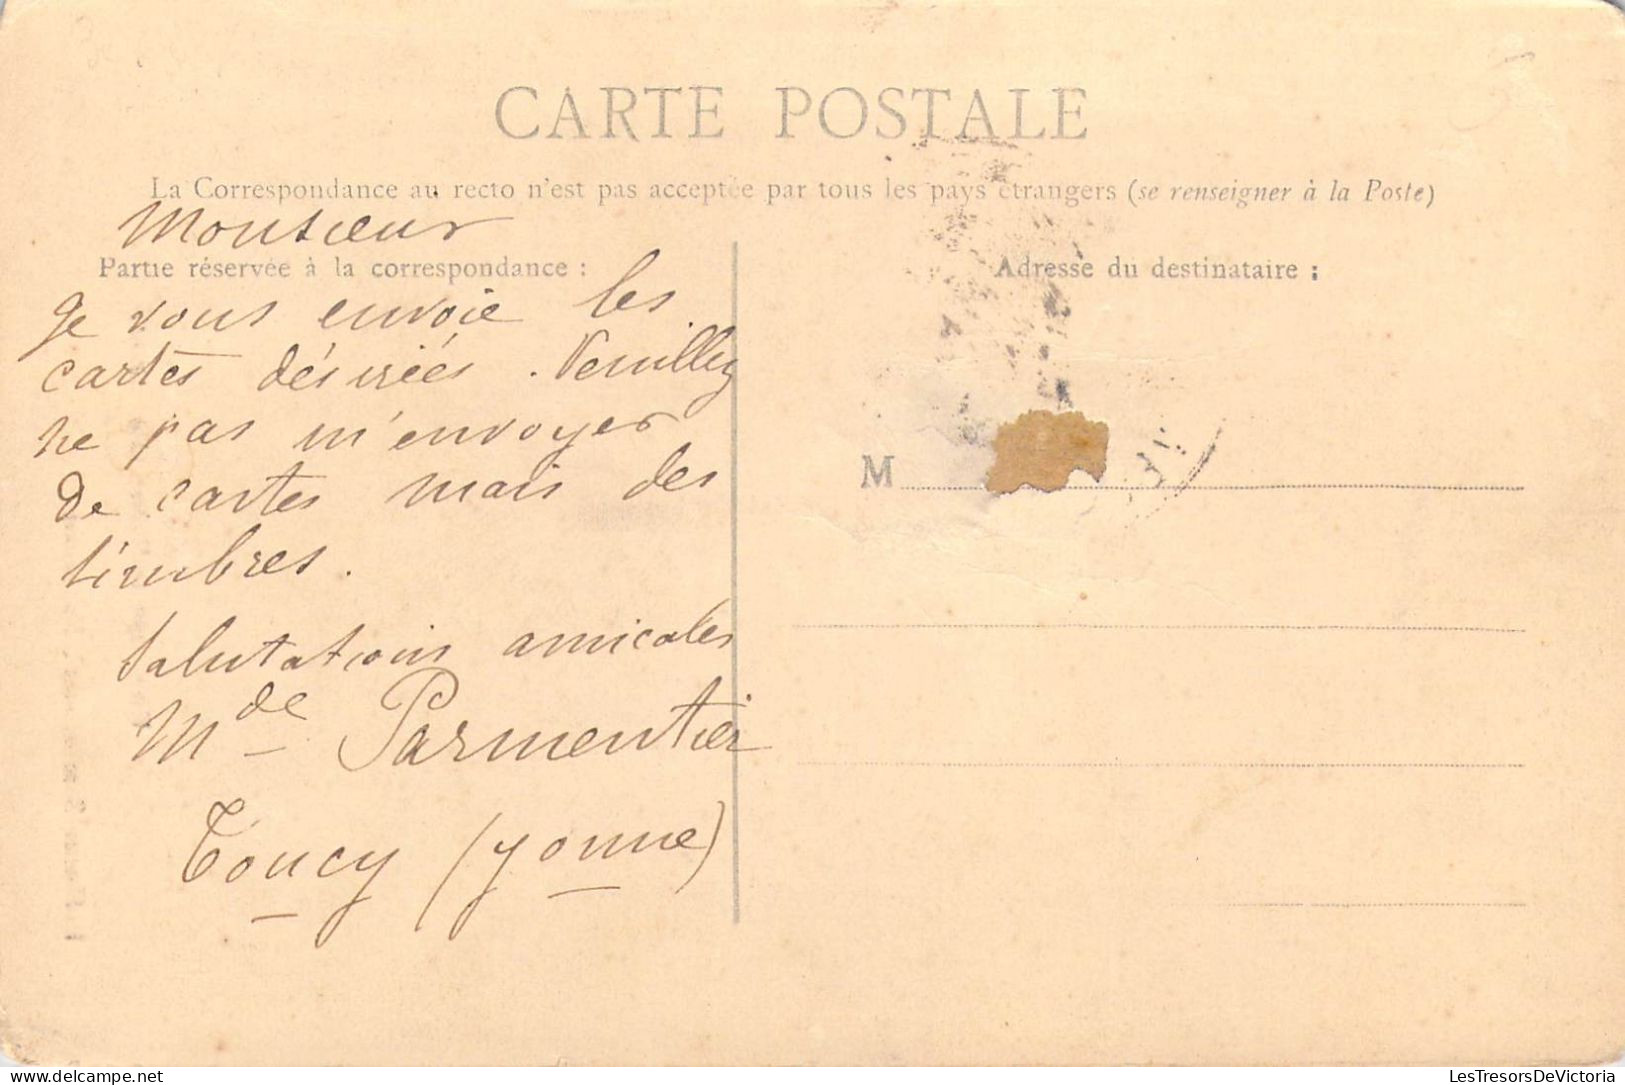 CARTE POSTALE
La Correspondance au recto n'est pas acceptée par tous les pays étrangers (se renseigner à la Poste)
Monsieur
Partie réservée à la correspondance :
Je vous envoie les
cartes désirées. Veuillez
ne pas m'envoyer
de cartes mais des
timbres.
Salutations amicales
Mde Parmentier
Toucy (Yonne)
Adresse du destinataire :
M
www.delcampe.net
LesTresorsDeVictoria